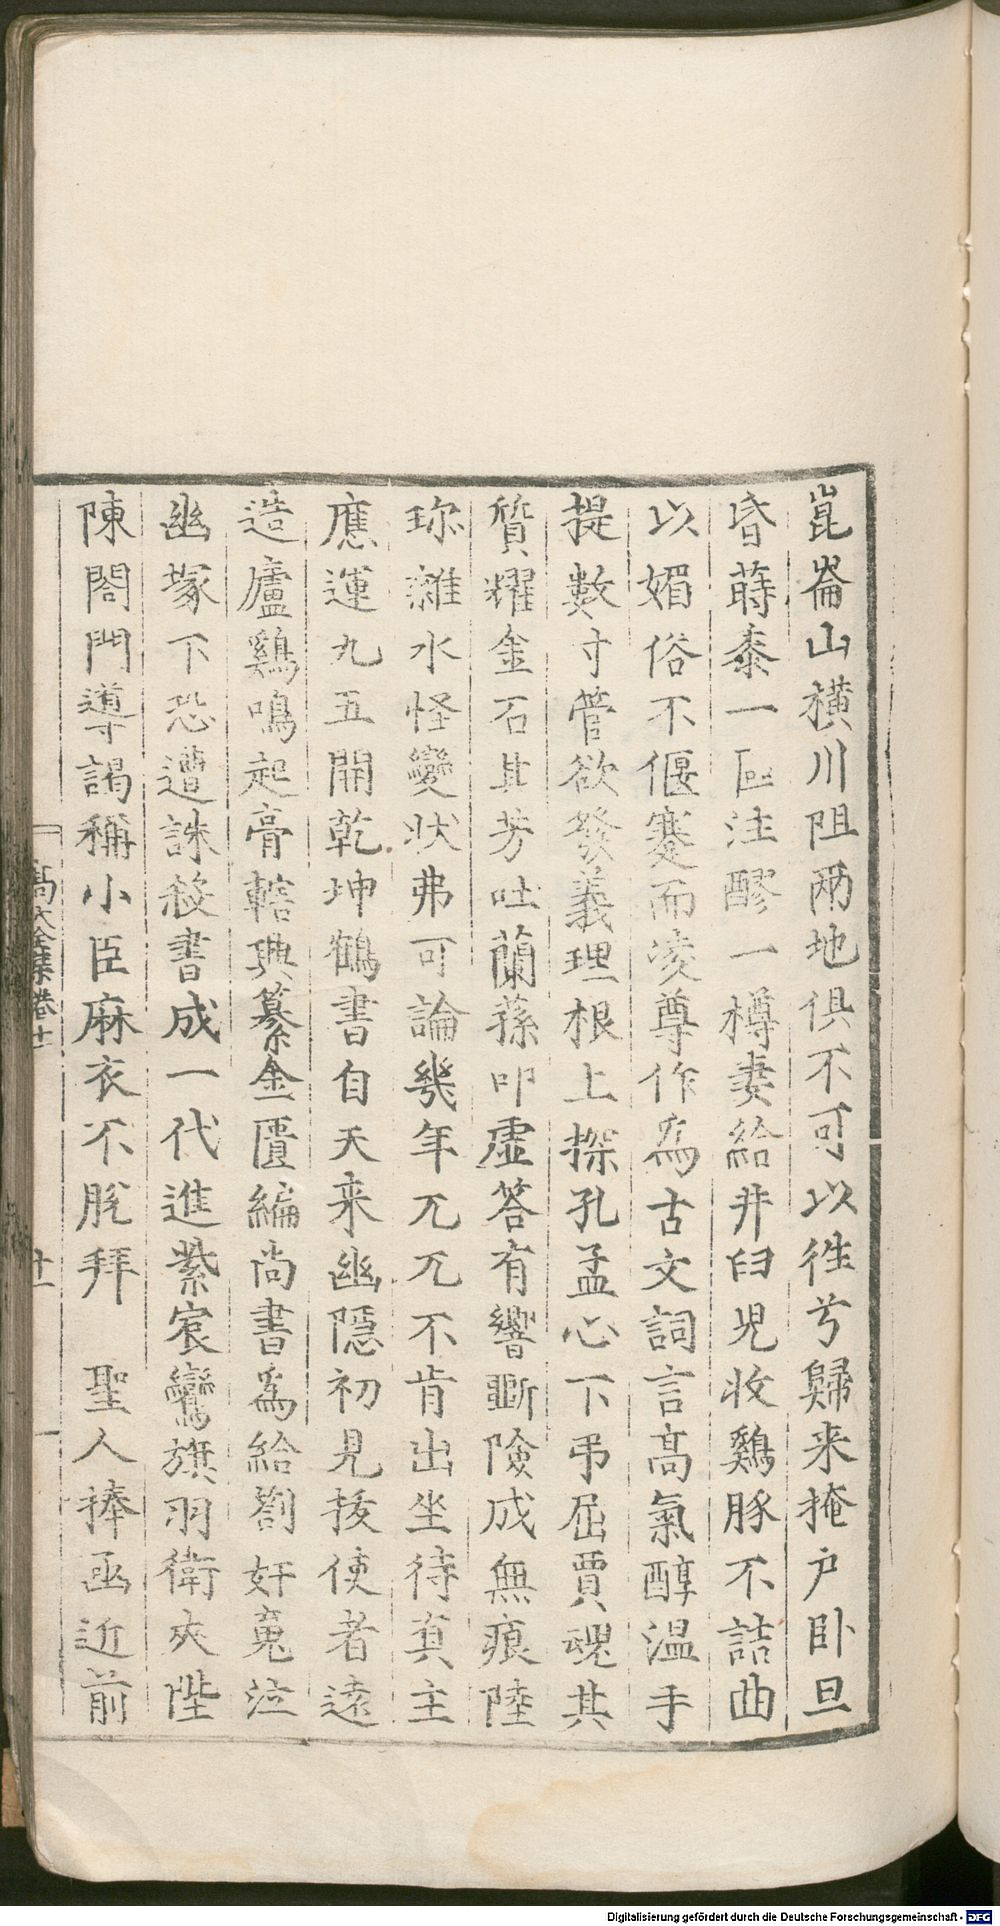 崑崙山橫川阻兩地俱不可以徃兮歸来掩户卧旦
昏蒔黍一區注醪一樽妻給井臼児收鷄豚不詰曲
以媚俗不偃蹇而凌尊作為古文詞言高氣醇温手
提數寸管欲發義理根上探孔孟心下弔屈賈魂其
質耀金石其芳吐蘭蓀叩虛答有響斵險成無痕陸
珎雜水怪變状弗可論幾年兀兀不肯出坐待真主
應運九五開乾坤鶴書自天来幽隱初見拔使者遠
造廬鷄鳴起膏轄典纂金匱編尚書為給劄奸䰟泣
幽塚下恐遭誅殺書成一代進紫宸鸞旗羽衛夾陛
陳閤門導謁稱小臣麻衣不脫拜 聖人捧函近前
高太全集卷十一
十一
Digitalisierung gefördert durch die Deutsche Forschungsgemeinschaft - DFG